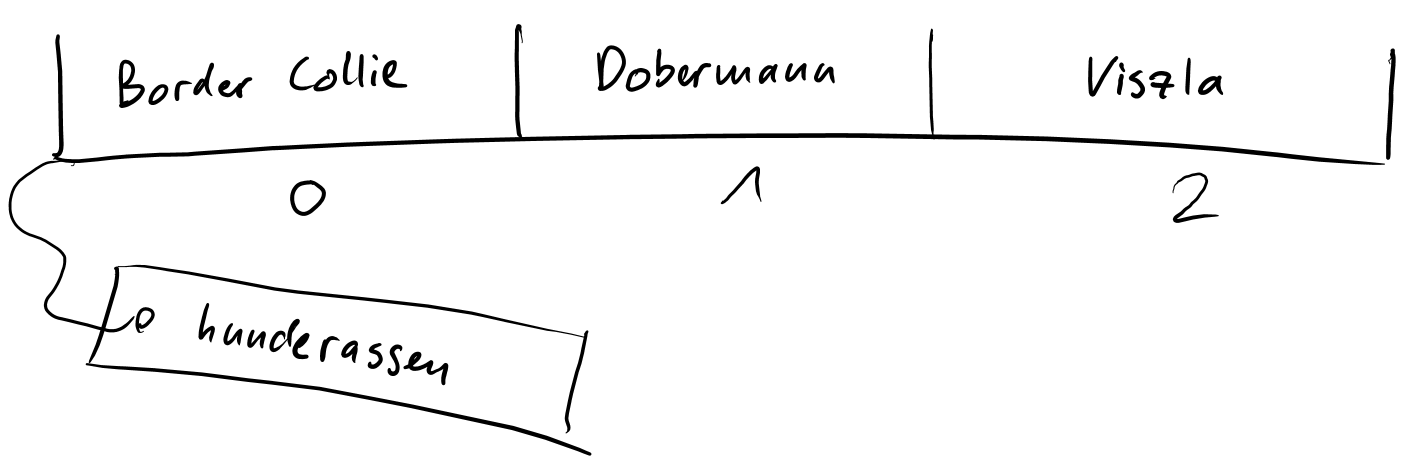 Border Collie Dobermann Viszla
0 1 2
hunderassen